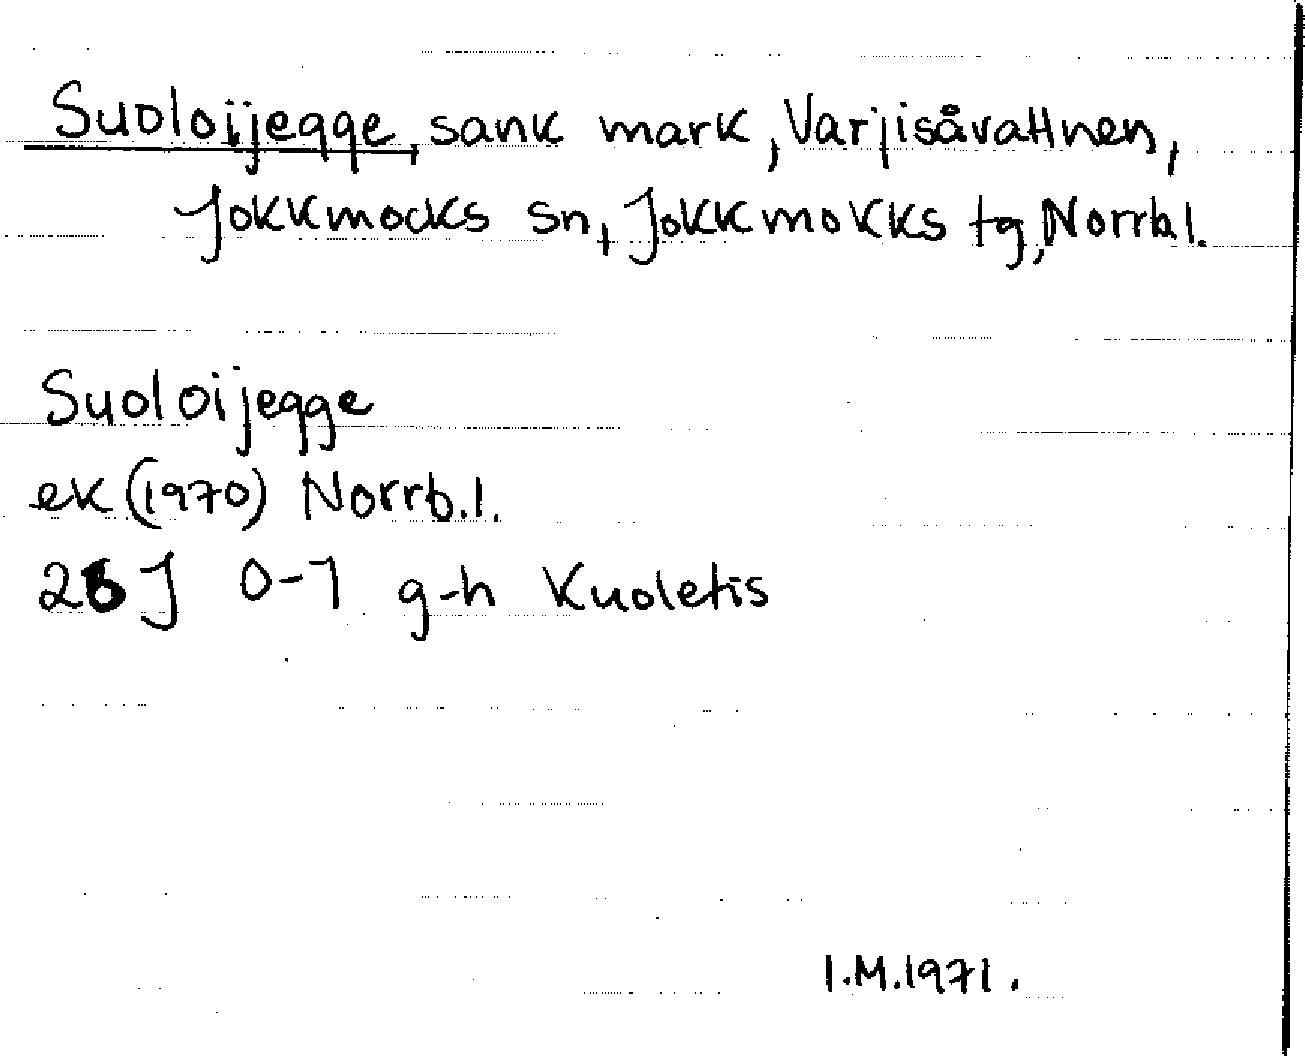 Suoloijegge, sank mark, Varjisåvattnen,
Jokkmocks sn, Jokkmokks tg, Norrb.l.
Suoloijegge
ek (1970) Norrb.l.
26 J 0-1 g-h Kuoletis
I.M.1971.